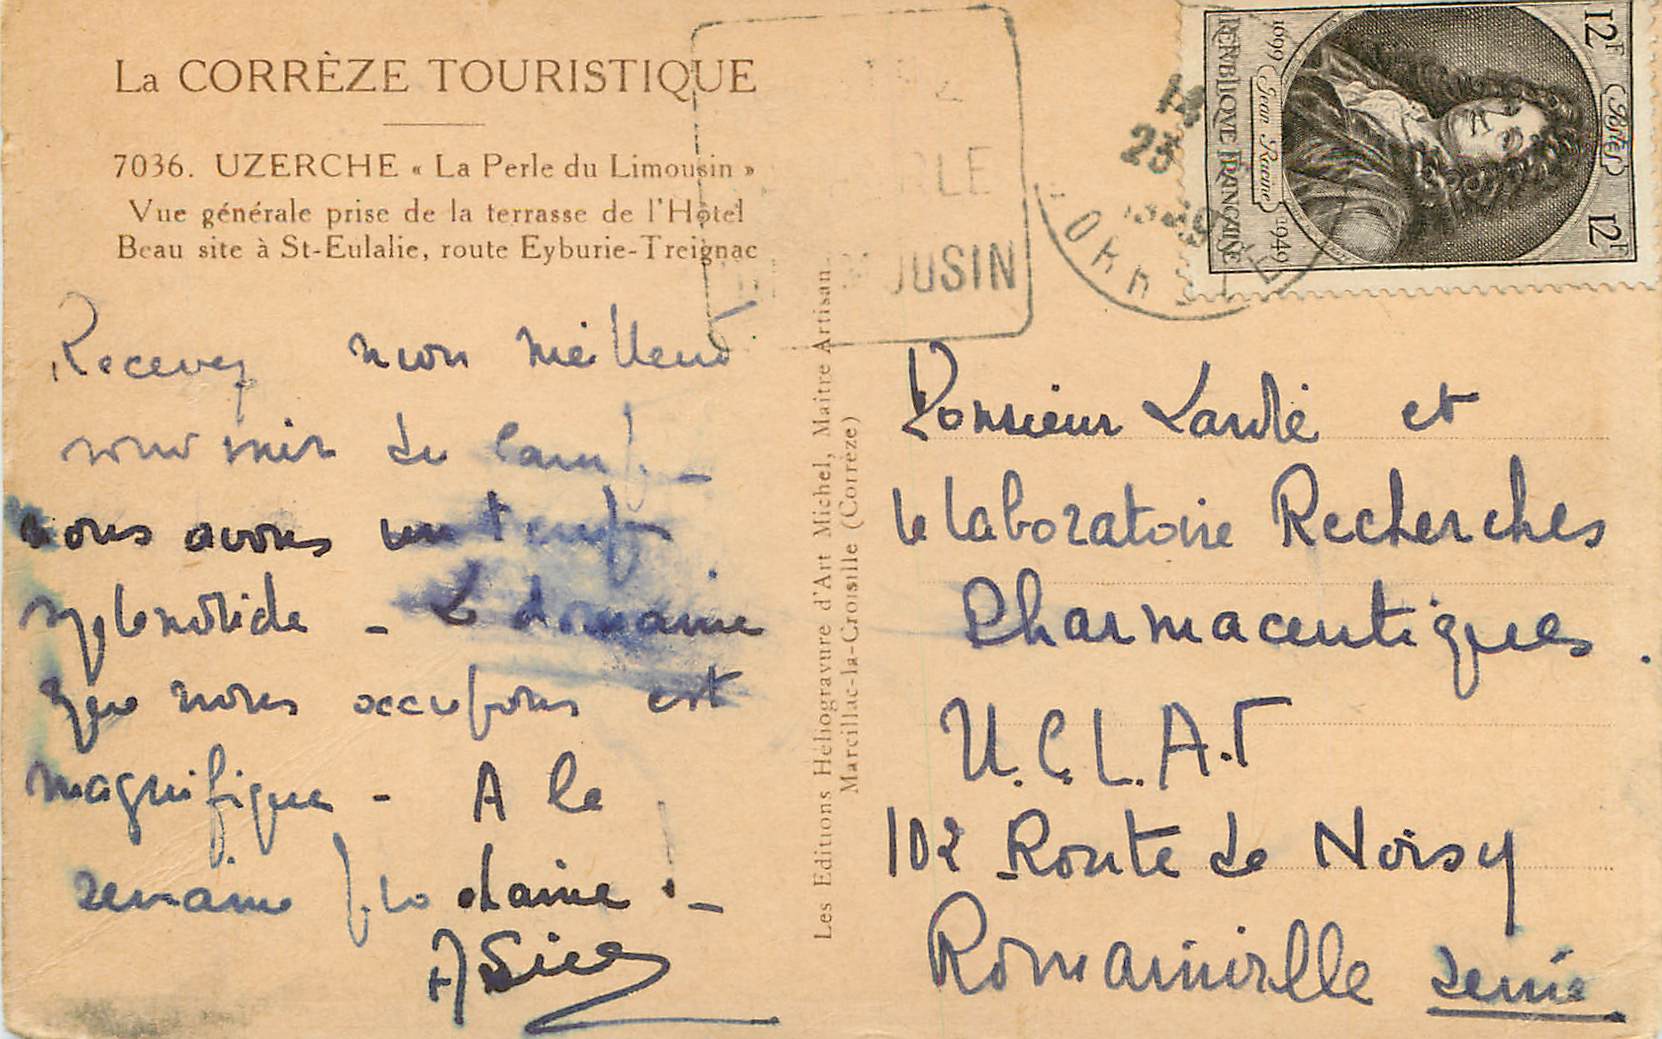 La CORRÈZE TOURISTIQUE
7036. UZERCHE « La Perle du Limousin »
Vue générale prise de la terrasse de l'Hôtel
Beau site à St-Eulalie, route Eyburie-Treignac
Recevez mon meilleur
souvenir du camp -
nous avons un temps
splendide - Le domaine
que nous occupons est
magnifique - A la
semaine prochaine ! -
Les Editions Héliogravure d'Art Michel, Maître Artisan
Marcillac-la-Croisille (Corrèze)
OUSIN
23
12F
12F
Postes
1699 Jean Racine 1949
REPUBLIQUE FRANÇAISE
Monsieur Lardé et
le laboratoire Recherches
Pharmaceutiques
U.C.L.A.F
102 Route de Noisy
Romainville Seine